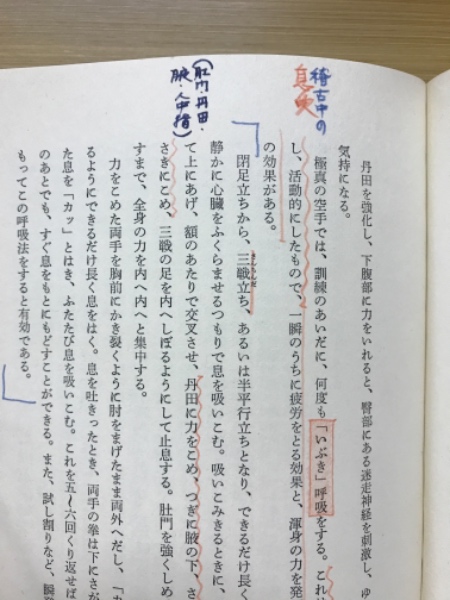 稽古中の
息吹
(肛門・丹田・
腋・人中指)
丹田を強化し、下腹部に力をいれると、臀部にある迷走神経を刺激し、ゆ
気持になる。
極真の空手では、訓練のあいだに、何度も「いぶき」呼吸をする。これは
し、活動的にしたもので、一瞬のうちに疲労をとる効果と、渾身の力を発
の効果がある。
閉足立ちから、三戦立ち、あるいは半平行立ちとなり、できるだけ長く
さんちんだ
静かに心臓をふくらませるつもりで息を吸いこむ。吸いこみきるときに、
て上にあげ、額のあたりで交叉させ、丹田に力をこめ、つぎに腋の下、さ
さきにこめ、三戦の足を内へしぼるようにして止息する。肛門を強くしめ
すまで、全身の力を内へ内へと集中する。
力をこめた両手を胸前にかき裂くように肘をまげたまま両外へだし、「カ
るようにできるだけ長く息をはく。息を吐ききったとき、両手の拳は下にさが
た息を「カッ」とはき、ふたたび息を吸いこむ。これを五〜六回くり返せば
のあとでも、すぐ息をもとにもどすことができる。また、試し割りなど、瞬発
もってこの呼吸法をすると有効である。